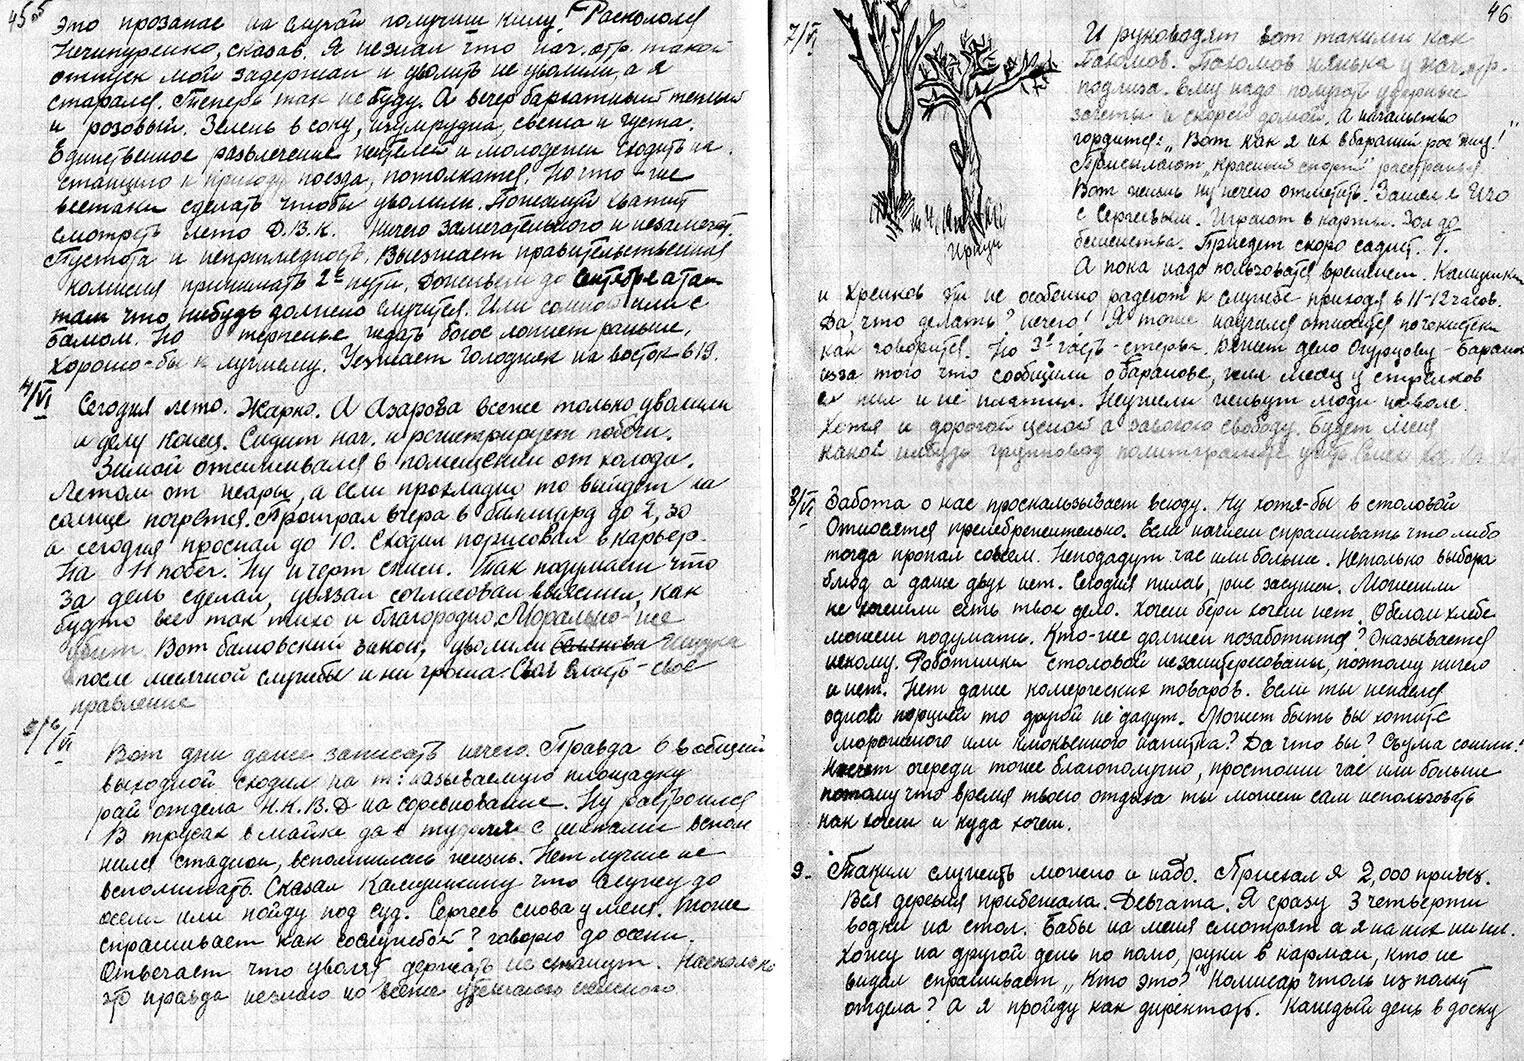 45 об
это прозапас на случай получить килу! Раскололся
Нечипуренко, сказав. Я не знал что нач. отр. такой
отпуск мой задержал и уволить не уволили, а я
старался. Теперь так не буду. А вечер бархатный теплый
и розовый. Зелень в соку, изумрудна, свежа и густа.
Единственное развлечение жителей и молодежи сходить на
станцию к приходу поезда, потолкатся. Но что-же
всетаки сделать чтобы уволили. Пожалуй хватит
смотреть лето Д.В.К. Ничего замечательного и незамечат.
Пустота и неприглядность. Выезжает правительственная
комисия принимать 2е пути. Доживем до а там
там что нибудь должно случится. Или со мной или с
Бамом. Но терпенье ждать богос лопнет раньше.
Хорошо-бы к лучшему. Уезжает Голодняк на восток в 19.
4/VI
Сегодня лето. Жарко. А Азарова всеже только уволили
и делу конец. Сидит нач. и регистрирует побеги.
Зимой отсиживался в помещении от холода.
Летом от жары, а если прохладно то выйдет на
солнце погретса. Проиграл вчера в биллиард до 2,30
а сегодня проспал до 10. Сходил порисовал в карьер.
На 11 побег. Ну и черт сними. Так подумаеш что
за день сделал, увязал согласовал выяснил, как
будто все так тихо и благородно. Морально-же
убит. Вот бамовский закон, уволили
после месячной службы и ни гроша. Своя власть - свое
правление
5/6/VI
Вот дни даже записать нечего. Правда 6 в общий
выходной сходил на т: называемую площадку
рай отдела Н.К.В.Д на соревнование. Ну растроился
В трусах в майке да в туфлях с шипами вспом
нился стадион, вспомнилась жизнь. Нет лучше не
вспоминать. Сказал Калашкину что служу до
осени или пойду под суд. Сергеев снова у меня. Тоже
спрашивает как со службой? говорю до осени.
Отвечает что уволят держать не станут. Насколько
это правда незнаю но всеже
46
7/VI
И руководят вот такими как
Пахомов. Пахомов нянька у нач. отр.
подлиза. Ему надо получать ударные
зачеты и скорей домой. А начальство
гордится: „Вот как я их в бараний рог жму!"
Присылают „красный спорт"
Вот жизнь ну нечего отметить. Зашел с
с Сергеевым. Играют в карты. Зол до
бешенства. Приедит скоро садит.
А пока надо пользоватся временем. Калашкин
и Хренков эти не особенно радеют к службе приходя в 11-12 часов.
Да что делать? нечего! Я тоже научился относится почекистки
как говорится. Но 3я часть-стерва. Вяжет дело Огурцову - Баранов
изза того что сообщили о Баранове, жил месяц у стрелков
ел пил и не платил. Неужели живут люди на воле.
Хотя и дорогой ценой а завоюю свободу. Будет меня
какой нибудь групповод политграмоте
8/VI
Забота о нас проскальзывает всюду. Ну хотя-бы в столовой
Относятся пренебрежительно. Если начнем спрашивать что либо
тогда пропал совсем. Неподадут час или больше. Нетолько выбора
блюд а даже двух нет. Сегодня пилав, рис засушен. Можешли
не хочешли есть твое дело. Хочеш бери хочеш нет. О белом хлебе
можеш подумать. Кто-же должен позаботится? Оказывается
некому. Работники столовой незаинтересованы, поэтому ничего
и нет. Нет даже комерческих товаров. Если ты ненаелся
одной порцией то другой не дадут. Может быть вы хотите
мороженого или клюквенного напитка? Да что вы? С ума сошли!
Насчет очереди тоже благополучно, простоиш час или больше
потому что время твоего отдыха ты можеш сам использовать
как хочеш и куда хочеш.
9.
Таким служить можно и надо. Приехал я 2,000 привез.
Вся деревня прибежала. Девчата. Я сразу 3 четверти
водки на стол. Бабы на меня смотрят а я на них ни ни.
Хожу на другой день по полю, руки в карман, кто не
видал спрашивает „Кто это?" Комисар чтоль из полит
отдела? А я пройду как директор. Каждый день в доску